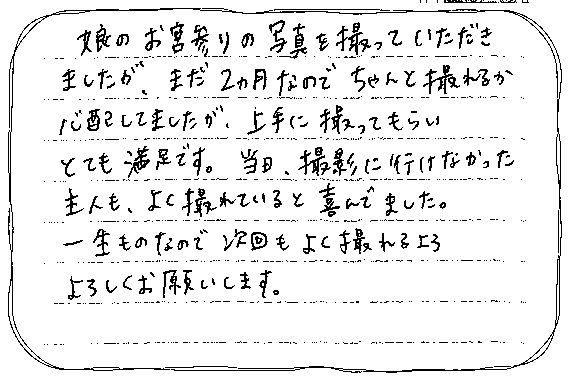 娘のお宮参りの写真を撮っていただき
ましたが、まだ2ヵ月なのでちゃんと撮れるか
心配してましたが、上手に撮ってもらい
とても満足です。当日、撮影に行けなかった
主人も、よく撮れていると喜んでました。
一生ものなので次回もよく撮れるよう
よろしくお願いします。